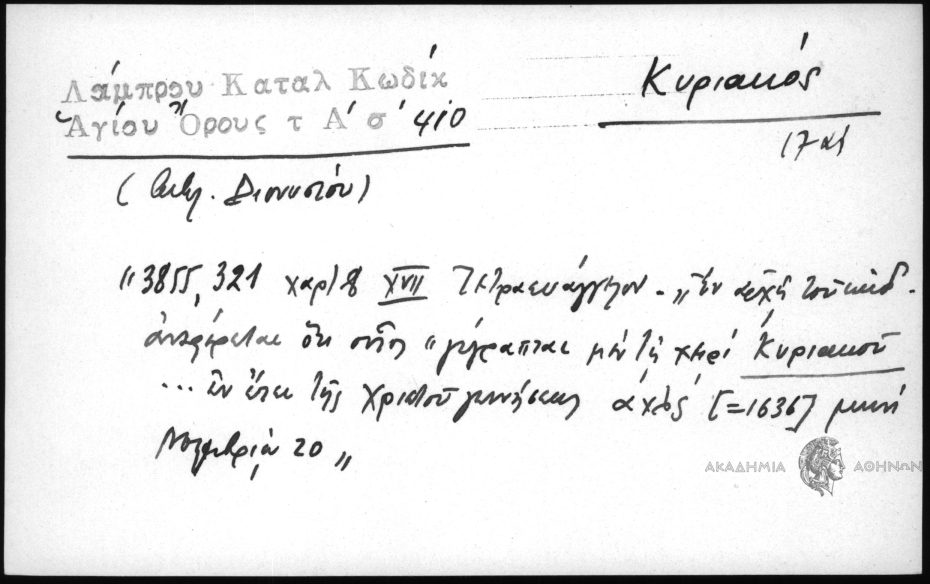 Λάμπρου Καταλ Κωδίκ
Ἁγίου Ὄρους τ Α΄ σ΄ 410
Κυριακός
17 αἰ
(Βιβλ. Διονυσίου)
"3855, 321 χαρτ 8 XVII Τετραευάγγελον - "ἐν ἀρχῇ τοῦ κώδ.
ἀναφέρεται ὅτι οὗτος "γέγραπται μὲν τῇ χειρὶ Κυριακοῦ
... ἐν ἔτει τῆς Χριστοῦ γεννήσεως αχλς [=1636] μηνὶ
Νοεμβρίῳ 20 "
ΑΚΑΔΗΜΙΑ ΑΘΗΝΩΝ